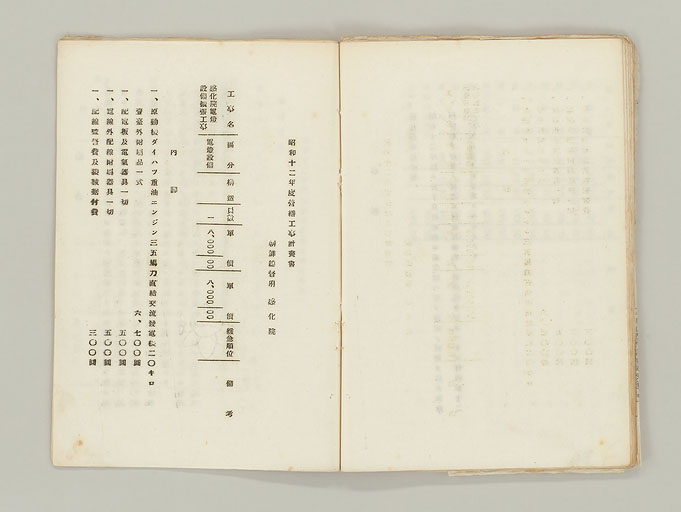 昭和十二年度營繕工事計畫書
朝鮮總督府 感化院
工事名 區分 構造 口數 單價 單價 緩急順位 備考
感化院電燈設備擴張工事 電燈設備 一 八,〇〇〇 〇〇 八,〇〇〇 〇〇
內譯
一、原動機ダイハツ重油エンジン三五馬力直結交流發電機二〇キロ
壹臺外附屬品一式 六、七〇〇圓
一、配電板及電氣器具一切 五〇〇圓
一、電線外配線附屬器具一切 五〇〇圓
一、配線監督費及機械据付費 三〇〇圓